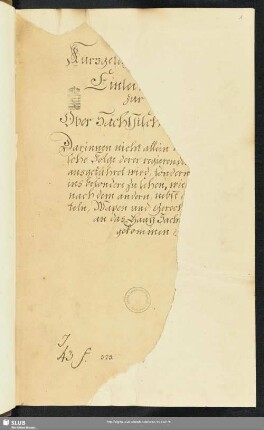 Kurzgefa
Einlei
zur
Ober Sächsische
Darinnen nicht allein
liche Folge derer regierend
ausgeführet wird, sondern
ins besondere zu sehen, wie
nach dem andern, nebst
teln, Wapen und Gerech
an das Hauß Sach
gekommen
J
43 f. 272.
SLUB